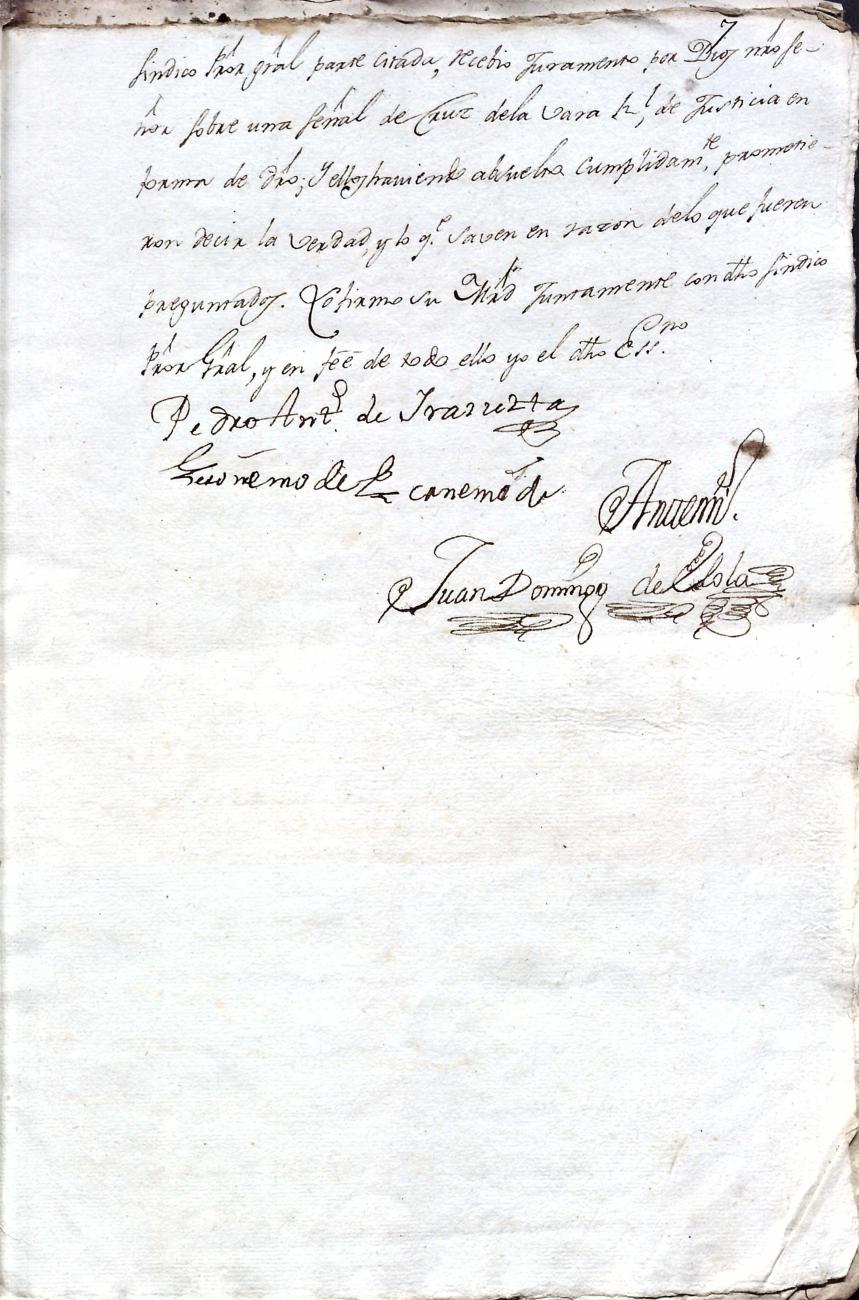 7
sindico Pror gral parte citada, recevio Juramento, por Dios nro se-
ñor sobre una señal de Cruz dela vara Rl, de Justicia en
forma de dro; y ellos haviendo absuelto cumplidamte, prometie-
ron decir la verdad, y lo qe saven en razon delo que fueren
preguntados. Lo firmo su Mrd Juntamente con dho sindico
Pror Gral, y en feé de todo ello yo el dho Essno
Pedro Anto de Irazuzta
Geronimo de
Antemi.
Juan Domingo de Elola